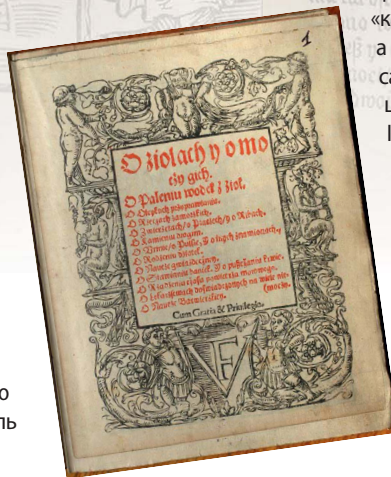 1
O ziolach y o mo
czy gich.
O Paleniu wodek z ziol.
O Oleykoch przyprawianiu.
O Rzeczach zamorskich.
O Zwierzętach/o Ptacech/y o Rybach.
O Kamieniu drogim.
O Urinie/o Pulsie, y o inych znamionach.
O Rodzeniu dziatek.
O Nauce gwiazdeczney.
O Stawianiu baniek. y o pusczaniu krwie.
O Rządzeniu czasu powietrza morowego.
O Lekarstwach doswiadczonych na wiele nie-
mocy.
O Nauce Barwierskiey.
Cum Gratia & Privilegio.
FV
«к
а
са
ц
о
ль